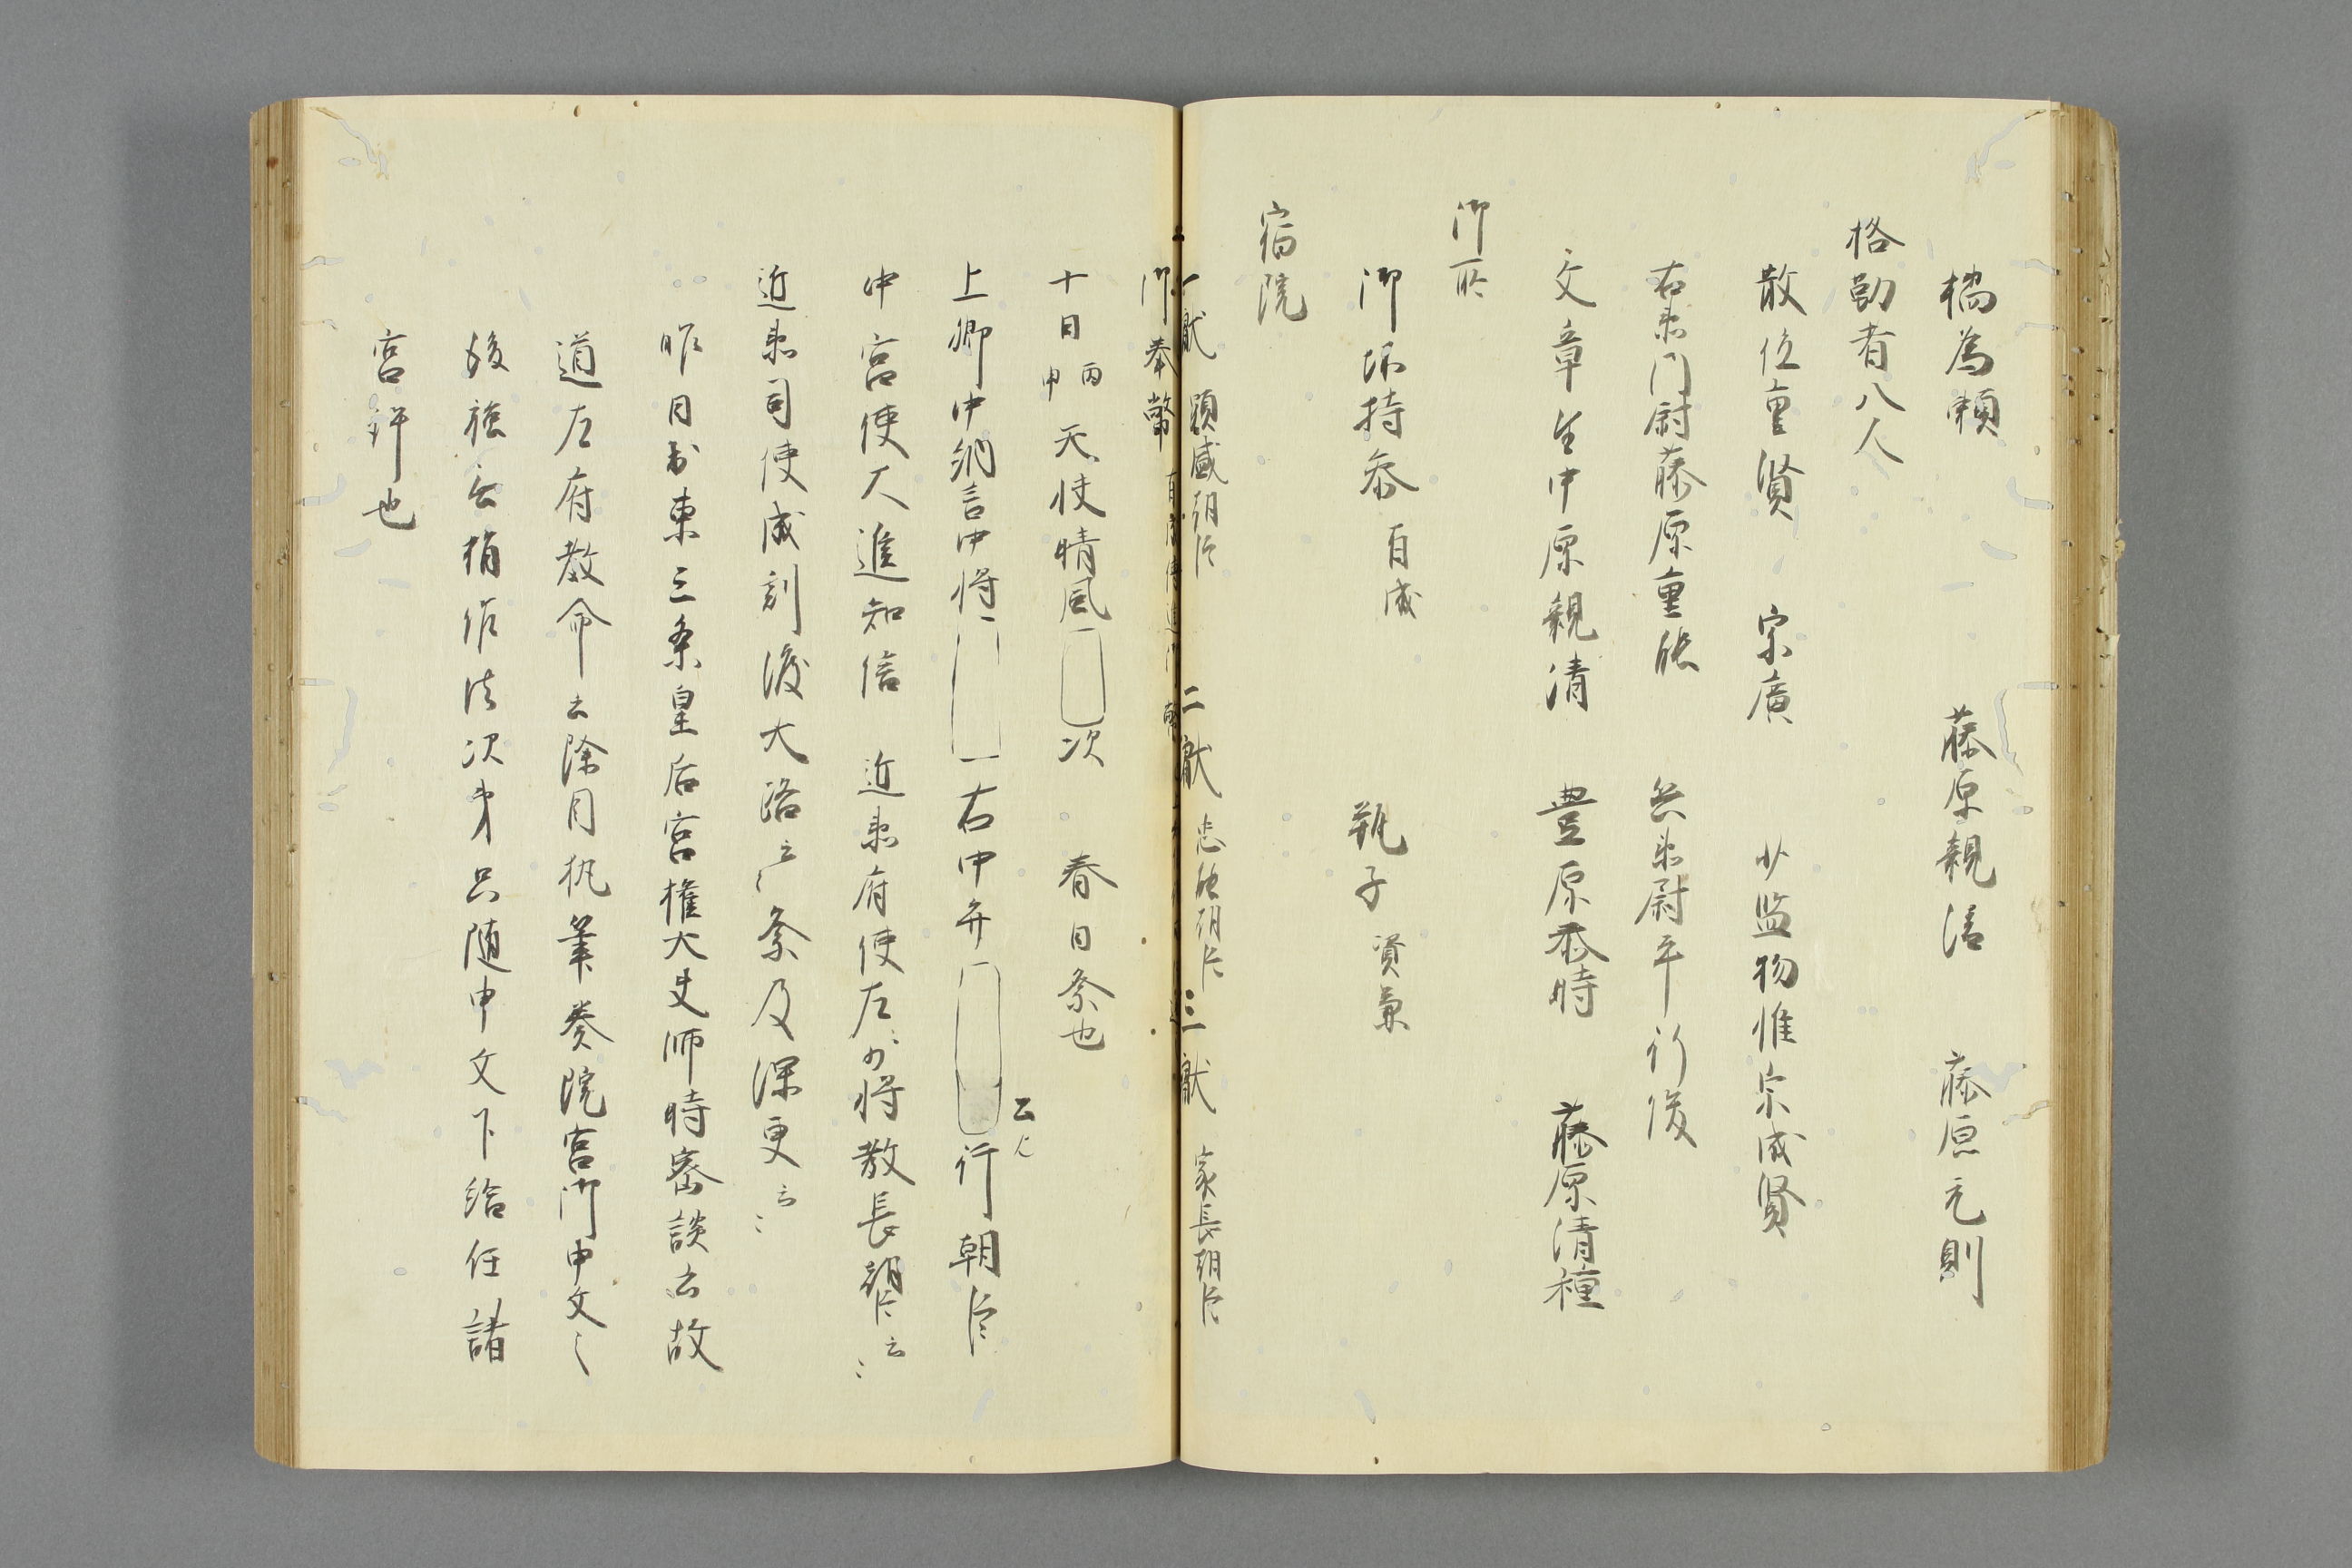 橘為頼　藤原親清　藤原元則
格勤者八人
散位重賢　宗廣　少監物惟宗成賢
右衛門尉藤原重能　兵衛尉平行俊
文章生中原親清　豊原泰時　藤原清種
御所
御坏持参 有成　瓶子 資兼
宿院
一献 顕盛朝臣　二献 忠能朝臣　三献 家長朝臣
御奉幣
十日 丙申 天快晴風　次　春日祭也
上卿中納言中将　右中弁　行朝臣
中宮使大進知信　近衛府使左少将教長朝臣云々
近衛司使戌刻渡大路云々祭及深更云々
昨日於東三条皇后宮権大夫師時密談云故
道左府教命云除目執筆奏院宮御申文之
後強不指作法次第只随申文下給任諸
宮許也